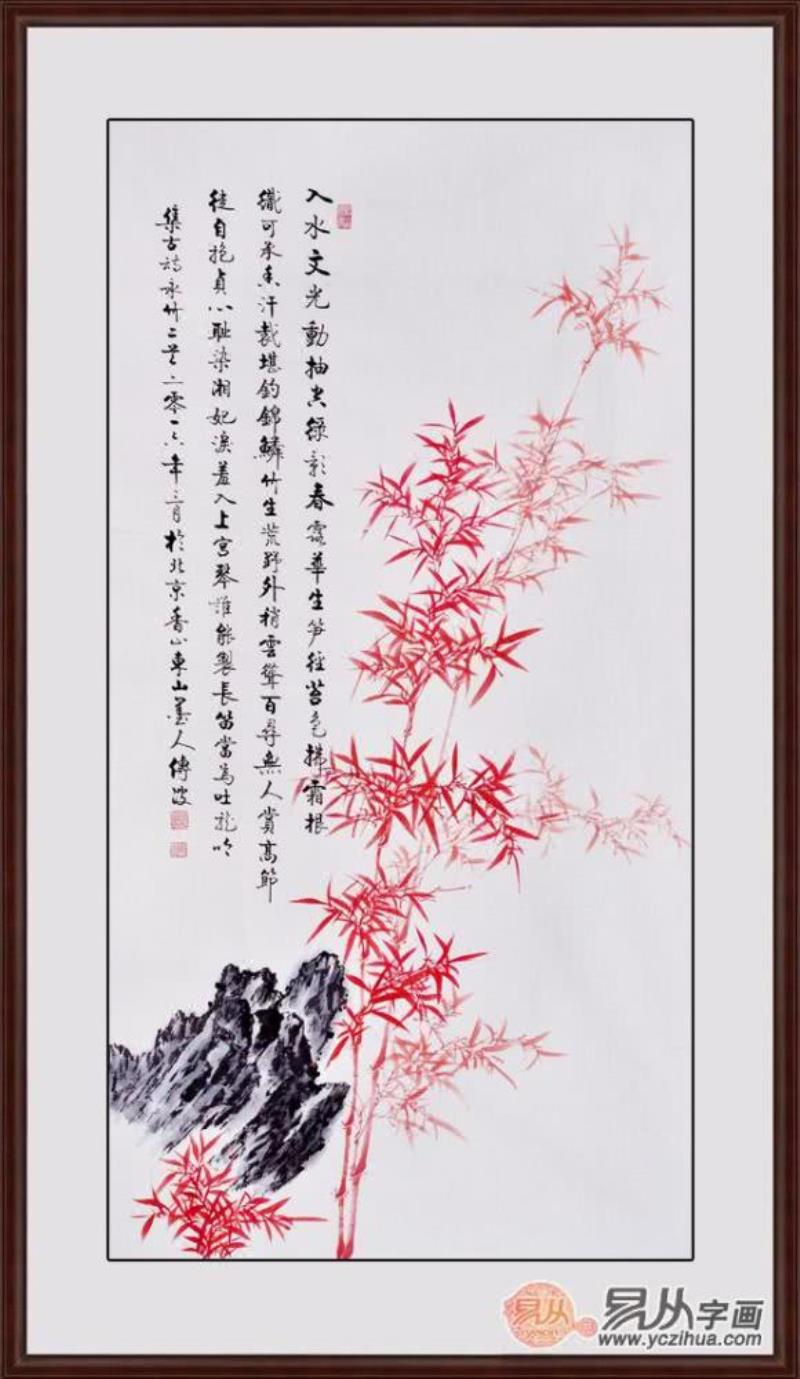 入水文光動抽空綠影春露華生笋徑苔色拂霜根
織可承香汗裁堪釣錦鱗竹生荒野外梢雲聳百尋無人賞高節
徒自抱貞心耻染湘妃淚羞入上宮琴誰能製長笛當為吐龍吟
集古詩詠竹二首二零一六年三月於北京香山東山墨人傅波
易从
易从字画
www.yczihua.com